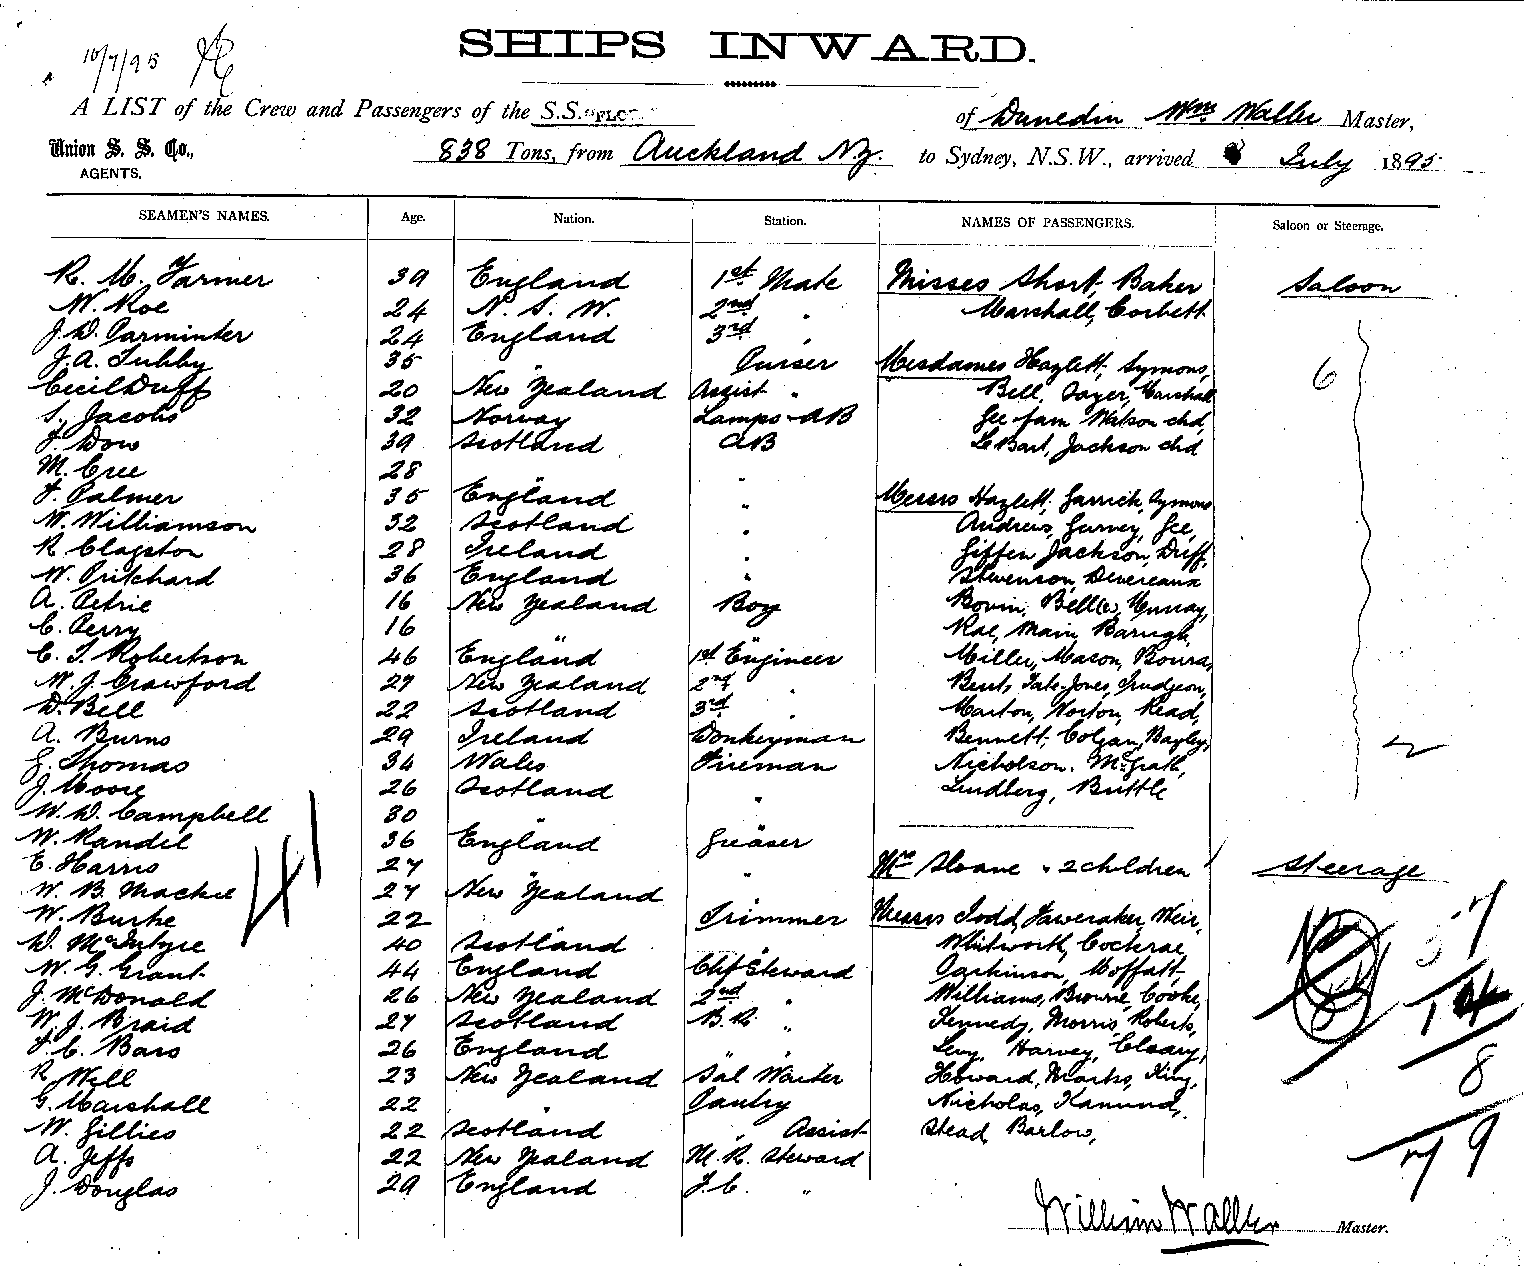 10/7/95
SHIPS INWARD.
A LIST of the Crew and Passengers of the S.S. "FLO of Dunedin Wm. Waller Master,
Union S. S. Co., 838 Tons, from Auckland NZ. to Sydney, N.S.W., arrived 8 July 1895
AGENTS.
SEAMEN'S NAMES. Age. Nation. Station. NAMES OF PASSENGERS. Saloon or Steerage.
R. M. Farmer 39 England 1st Mate Misses Short, Baker Saloon
W. Roe 24 N. S. W. 2nd " Marshall, Corbett
J. D. Parminter 24 England 3rd
J. A. Tubby 35 " Purser Mesdames Hazlett, Symons, 6
Cecil Duff 20 New Zealand Assist " Bell, Sayer, Marshall
S. Jacobs 32 Norway Lamps - AB Gee fam Watson chd
J. Dow 39 Scotland AB Le Bart, Jackson chd
M. Cree 28 " "
F. Palmer 35 England " Messrs Hazlett, Garrick, Symons
W. Williamson 32 Scotland " Andrews, Garvey, Gee,
R. Clagston 28 Ireland " Giffen, Jackson, Duff,
W. Pritchard 36 England " Stevenson, Devereaux
A. Petrie 16 New Zealand Boy Bovin, Bell, Murray,
C. Perry 16 " " Rae, Main, Barugh,
C. T. Robertson 46 England 1st Engineer Miller, Mason, Boura,
W. J. Crawford 27 New Zealand 2nd " Bent, Tate, Jones, Trudgeon,
D. Bell 22 Scotland 3rd " Marton, Norton, Read,
A. Burns 29 Ireland Donkeyman Bennett, Colgan, Bayley,
G. Thomas 34 Wales Fireman Nicholson, McGrath,
J. Moore 26 Scotland " Lindberg, Buttle
W. D. Campbell 30 "
W. Randel 36 England Greaser
E. Harris 27 " " Mrs Sloane & 2 children Steerage
W. B. Mackie 27 New Zealand
41
W. Burke 22 " Trimmer Messrs Todd, Faweraker, Weir,
D. McIntyre 40 Scotland " Whitworth, Cockrae,
W. G. Grant 44 England Chf Steward Parkinson, Moffatt,
J. McDonald 26 New Zealand 2nd " Williams, Browne, Cooke,
W. J. Braid 27 Scotland B. R. " Kennedy, Morris, Roberts,
F. C. Bars 26 England " " Levy, Harvey, Cleary,
R. Will 23 New Zealand Sal Waiter Howard, Marks, King,
G. Marshall 22 " Pantry Nicholas,
W. Gillies 22 Scotland " Assist Stead, Barlow,
A. Jeffs 22 New Zealand M. R. Steward
J. Douglas 29 England F. C. "
8
79
William Waller Master.